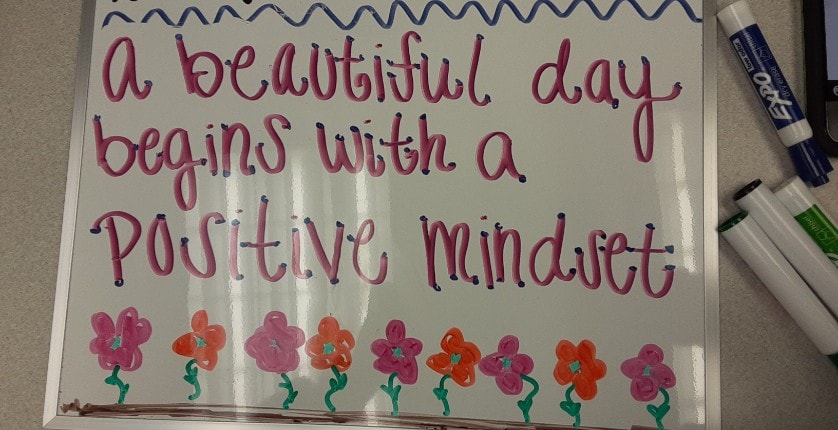 a beautiful day
begins with a
positive mindset
EXPO